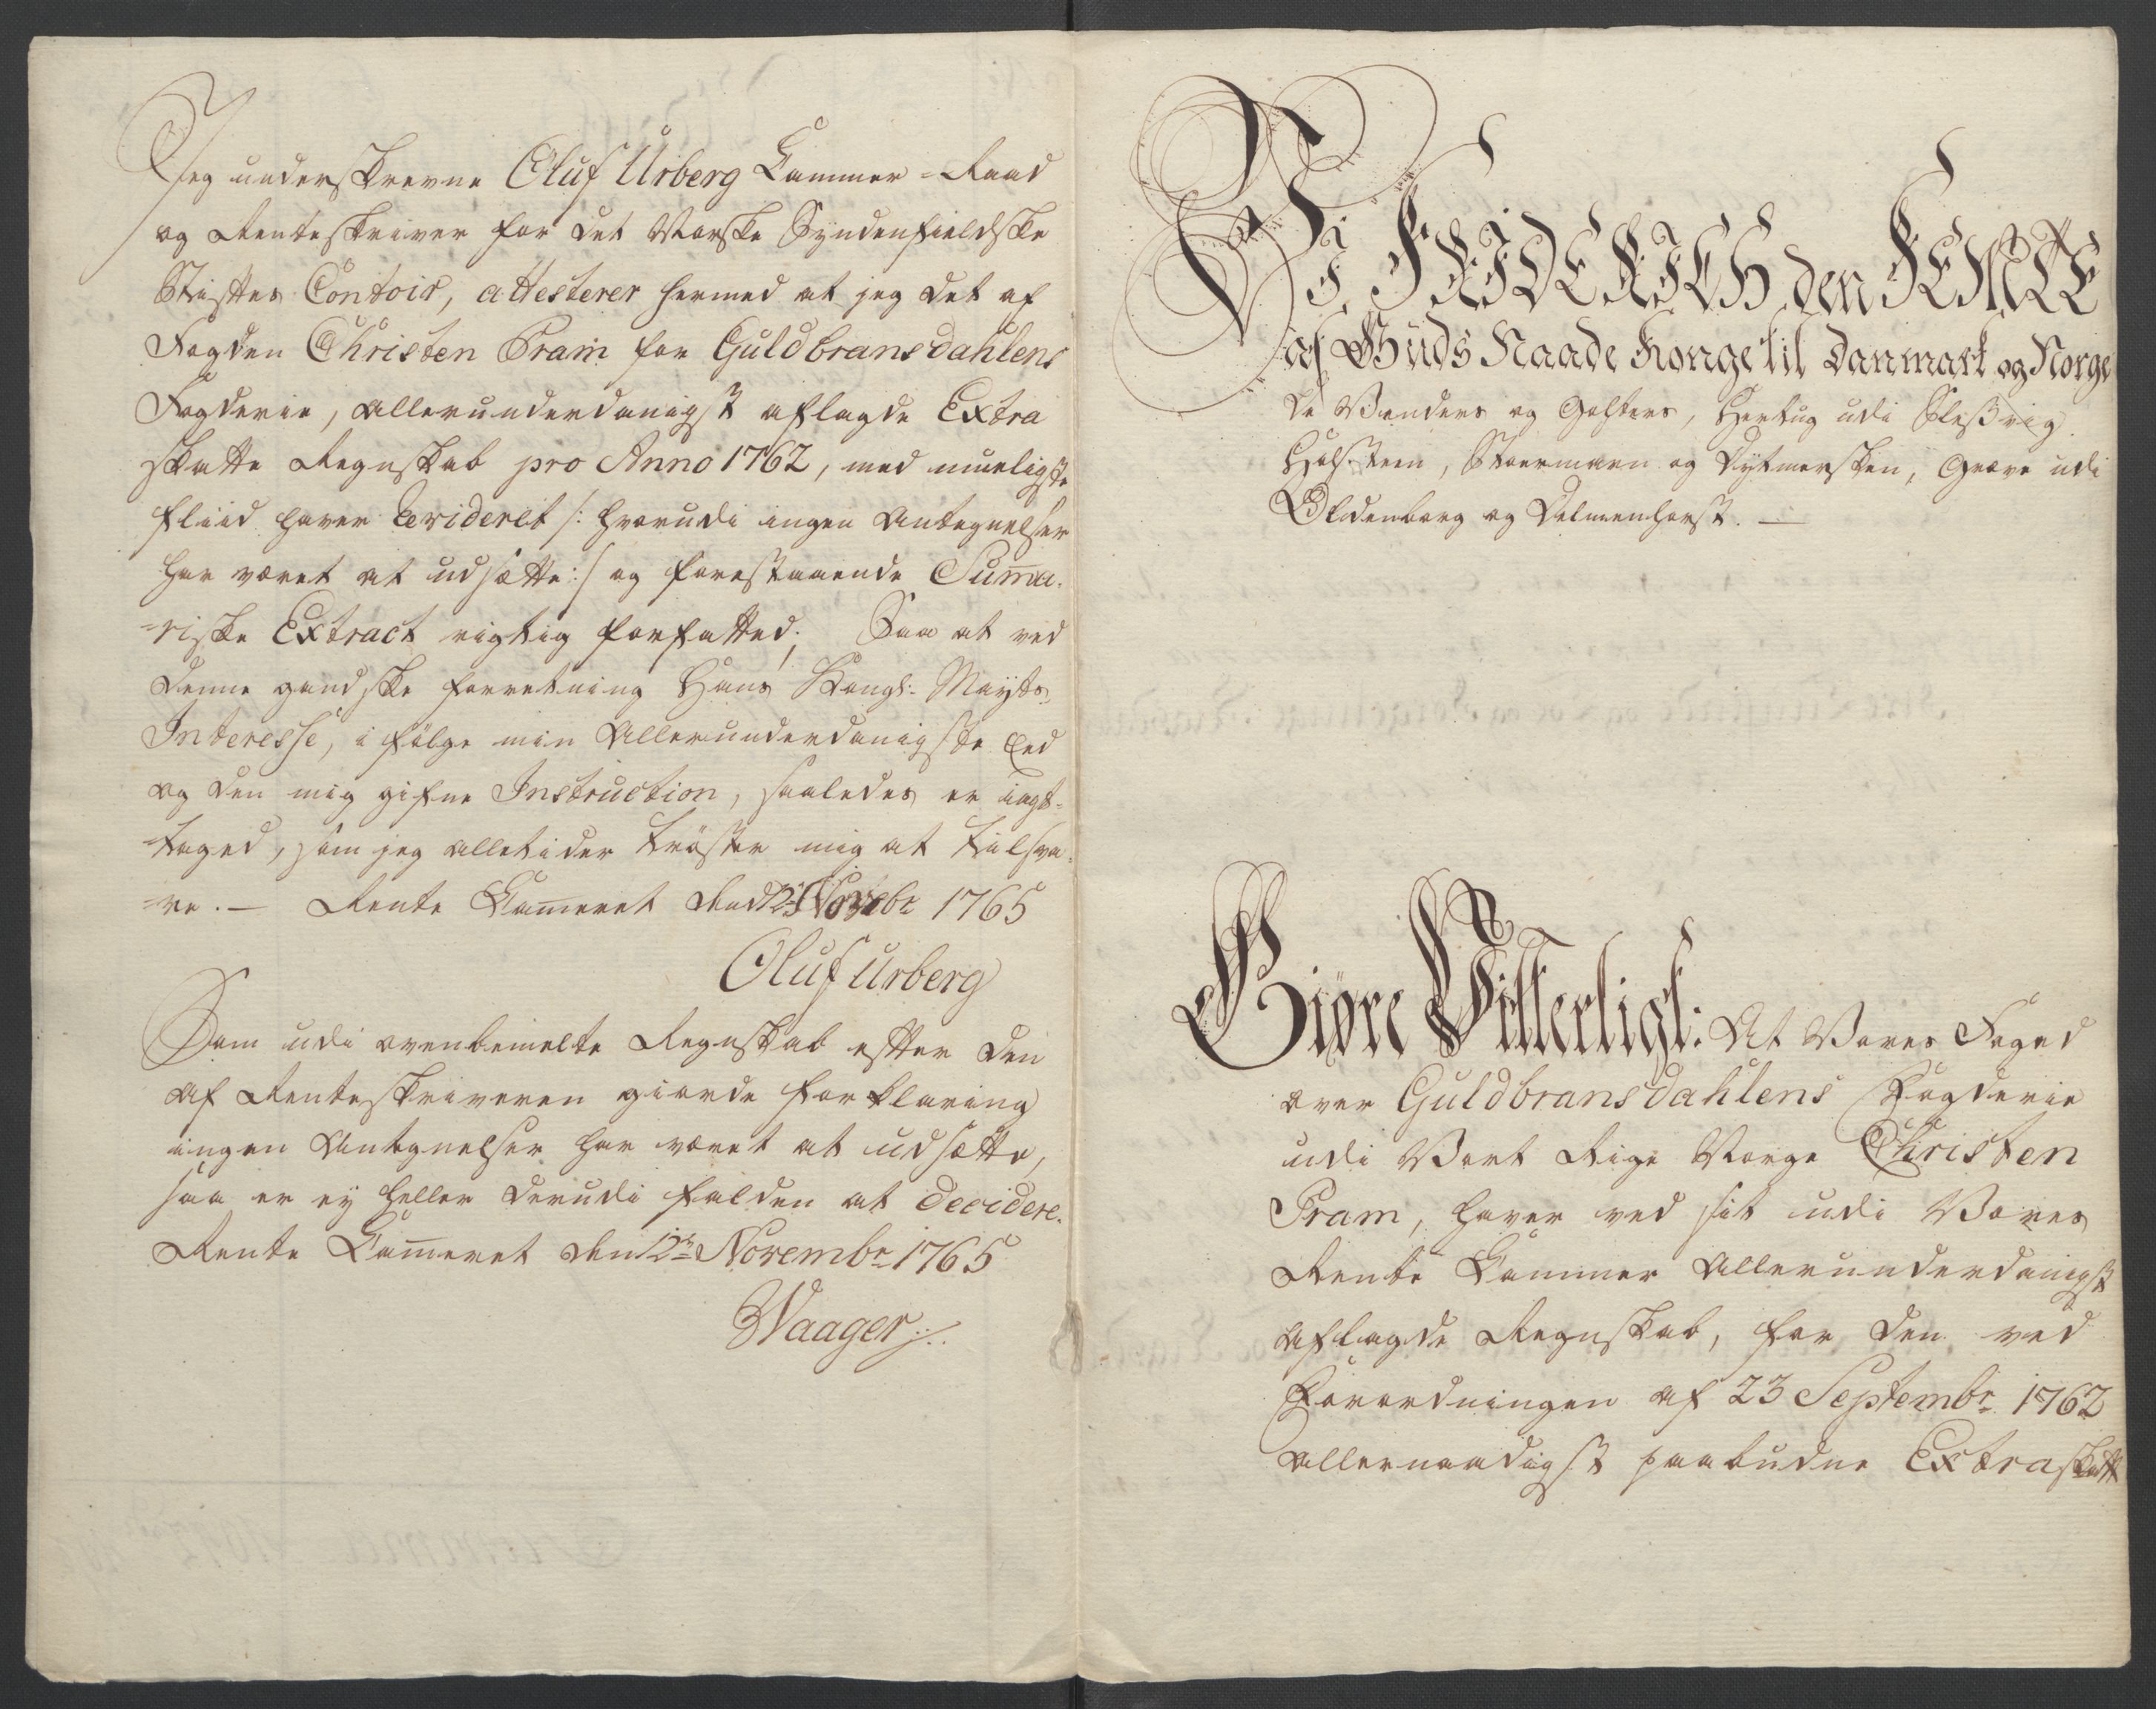 Jeg underskrevne Oluf Urberg Cammer-Raad
og Renteskriver for det Norske Syndenfieldske
Stifters Contoir, attesterer hermed at jeg det af
Fogden Christen Pram for Guldbransdahlens
Fogderie, allerunderdanigst aflagde Extra
skatte Regnskab pro Anno 1762, med mueligste
fliid haver Revideret /: hvorudi ingen Antegnelser
har været at udsætte :/ og forestaaende Suma-
-riske Extract rigtig forfatted; Saa at ved
denne gandske forretning Hans Kongl: Mayts
Interesse, i følge min Allerunderdanigste Eed
og den mig gifne Instruction, saaledes er iagt-
-taged, som jeg alletider trøster mig at tilsva-
-re. — Rente Cameret den 12t Novebr 1765
Oluf Urberg
Som udi ovenbemelte Regnskab efter den
af Renteskriveren giorde forklaring
ingen Antegnelser har været at udsætte,
saa er ey heller derudi falden at decidere.
Rente Cameret den 12te Novembr 1765
Waager
Vi FRIDERICH den FEMTE
af Guds Naade Konge til Danmark og Norge
de Venders og Gothers, Hertug udi Sleßvig
Holsteen, Stoermarn og Dytmersken, Greve udi
Oldenborg og Delmenhorst. —
Giøre Vitterligt: At Vores Foged
over Guldbransdahlens Fogderie
udi Vort Rige Norge Christen
Pram, haver ved sit udi Vores
Rente Kammer Allerunderdanigst
aflagde Regnskab, for den ved
Forordningen af 23 Septembr 1762
allernaadigst paabudne Extraskatt